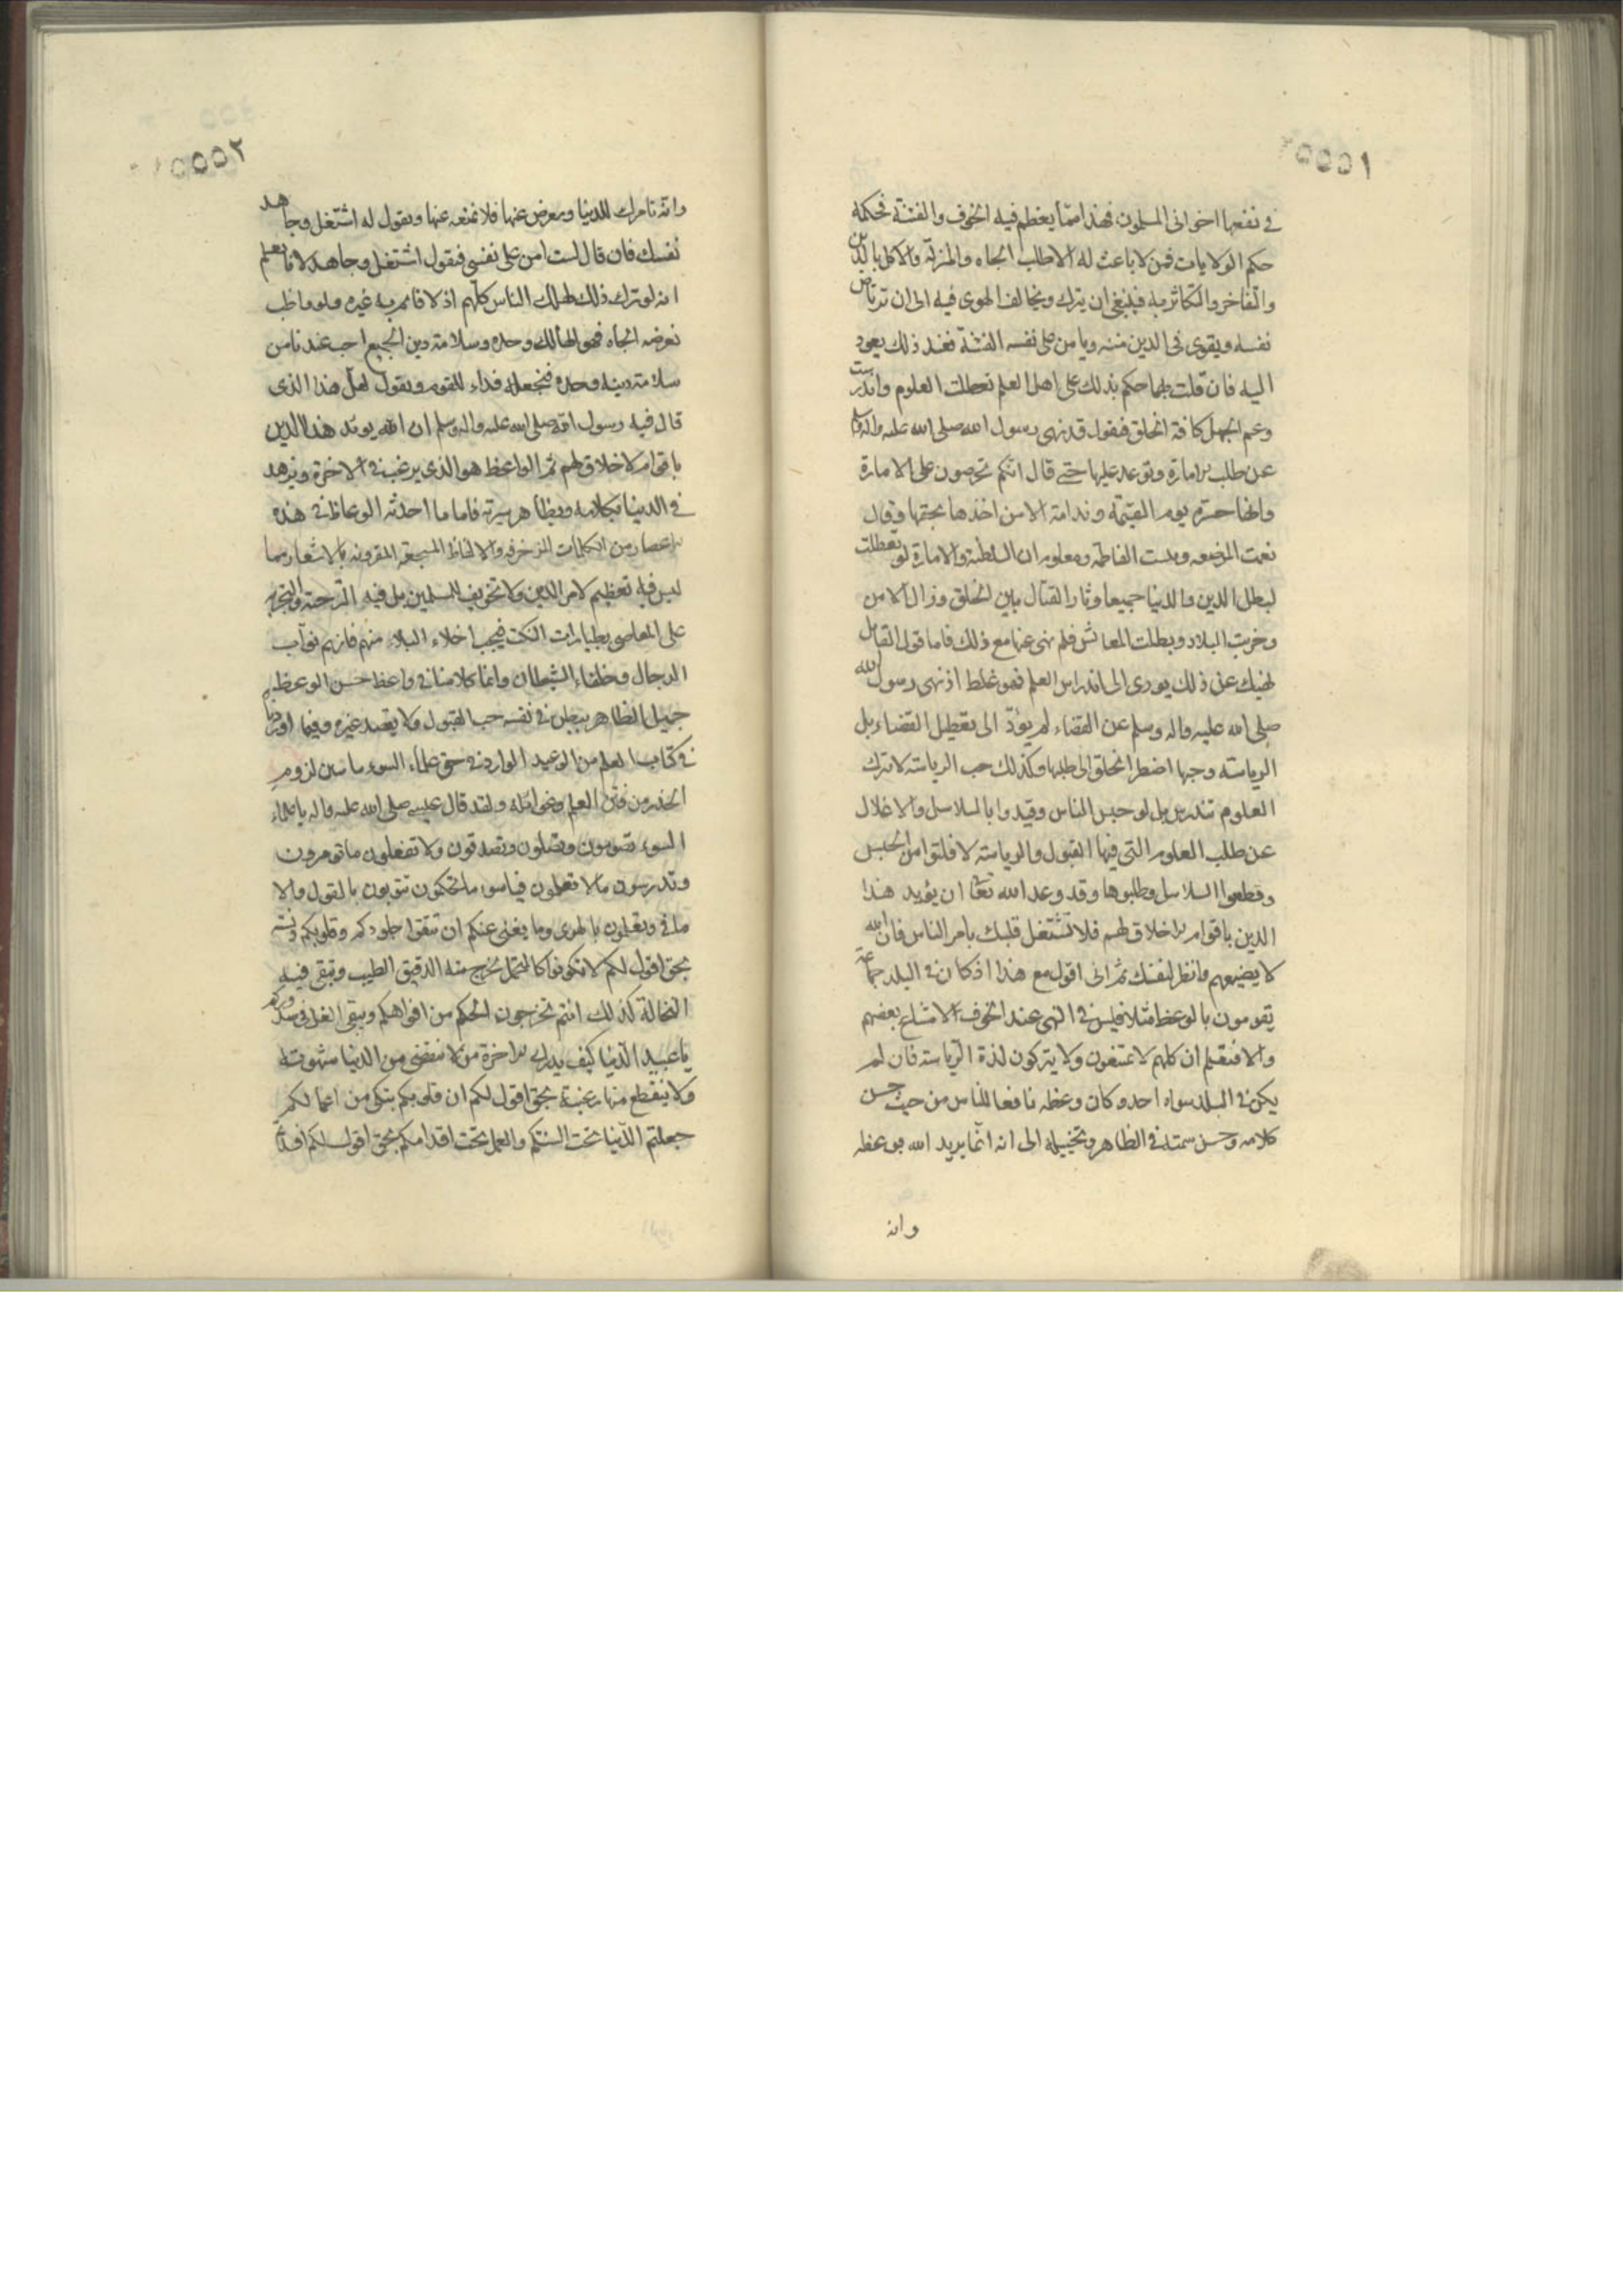 ٢٥٥٥١
في نفعها اخواني المسلمون فهذا مما يعظم فيه الخوف والفتنة فحكمه
حكم الولايات فمن لا باعث له الا طلب الجاه والمنزلة والاكل بالدين
والتفاخر والتكاثر به فينبغي ان يترك ويخالف الهوى فيه الى ان ترتاض
نفسه ويقوى في الدين منته ويامن على نفسه الفتنة فعند ذلك يعود
اليه فان قلت مهما حكم بذلك على اهل العلم تعطلت العلوم واندرست
وعم الجهل كافة الخلق فنقول قد نهى رسول الله صلى الله عليه واله وسلم
عن طلب الامارة وتوعد عليها حتى قال انكم تحرصون على الامارة
وانها حسرة يوم القيمة وندامة الا من اخذها بحقها وقال
نعمت المرضعه وبئست الفاطمه ومعلوم ان السلطنة والامارة لو تعطلت
لبطل الدين والدنيا جميعا وثار القتال بين الخلق وزال الامن
وخربت البلاد وبطلت المعائش فلم نهى عنها مع ذلك فاما قول القائل
نهيك عن ذلك يودى الى اندراس العلم فهو غلط اذ نهى رسول الله
صلى الله عليه واله وسلم عن القضاء لم يؤد الى تعطيل القضاء بل
الرياسته وحبها اضطر الخلق الى طلبها وكذلك حب الرياسته لا تترك
العلوم تندرس بل لو حبس الناس وقيدوا بالسلاسل والاغلال
عن طلب العلوم التي فيها القبول والرياسته لافلتوا من الحبس
وقطعوا السلاسل وطلبوها وقد وعد الله تعا ان يؤيد هذا
الدين باقوام لا خلاق لهم فلا تشتغل قلبك بامر الناس فان الله
لا يضيعهم وانظر لنفسك ثم اني اقول مع هذا اذ كان في البلد جماعة
يقومون بالوعظ مثلا فليس في النهى عند الخوف الا امتناع بعضهم
والا فنعلم ان كلهم لا يمتنعون ولا يتركون لذة الرياسته فان لم
يكن في البلد سواه احد وكان وعظه نافعا للناس من حيث حسن
كلامه وحسن سمته في الظاهر وتخييله الى انه انما يريد الله بوعظه
وانه
٢٥٥٥٢
وانه تارك للدنيا ومعرض عنها فلا نمنعه عنها ونقول له اشتغل وجاهد
نفسك فان قال لست امن على نفسى فنقول اشتغل وجاهد لانا نعلم
انه لو ترك ذلك لهلك الناس كلهم اذ لا قائم به غيره ولو واظب
وغرضه الجاه فهو الهالك وحده وسلامة دين الجميع احب عندنا من
سلامة دينه وحده فنجعله فداء للقوم ونقول لعل هذا الذى
قال فيه رسول الله صلى الله عليه واله وسلم ان الله يؤيد هذا الدين
باقوام لا خلاق لهم ثم الواعظ هو الذى يرغب في الاخرة ويزهد
في الدنيا بكلامه وبظاهر سيرته فاما ما احدثه الوعاظ في هذه
الاعصار من الكلمات المزخرفه والالفاظ المسجعه المقرونه بالاشعار مما
ليس فيه تعظيم لامر الدين ولا تخويف للمسلمين بل فيه الترجئة والتجرئة
على المعاصى بطيارات النكت فيجب اخلاء البلاد منهم فانهم نواب
الدجال وخلفاء الشيطان وانما كلامنا في واعظ حسن الوعظ
جميل الظاهر يبطن في نفسه حب القبول ولا يقصد غيره وفيما اوردناه
في كتاب العلم من الوعيد الوارد في حق علماء السوء ما يبين لزوم
الحذر من فتن العلم وغوائله ولقد قال عيسى صلى الله عليه واله يا علماء
السوء تصومون وتصلون وتصدقون ولا تفعلون ما تومرون
وتدرسون مالا تعملون فياسوء ما تحكمون تتوبون بالقول والا
ماني وتعملون بالهوى وما يغنى عنكم ان تنقوا جلودكم وقلوبكم دنسته
بحق اقول لكم لا تكونوا كالمنخل يخرج منه الدقيق الطيب وتبقى فيه
النخالة كذلك انتم تخرجون الحكم من افواهكم ويبقى الغل في صدوركم
يا عبيد الدنيا كيف يدرك الاخرة من لا تنقضى من الدنيا شهوته
ولا ينقطع منها رغبته بحق اقول لكم ان قلوبكم تبكى من اعمالكم
جعلتم الدنيا تحت السنتكم والعمل تحت اقدامكم بحق اقول لكم افسدتم